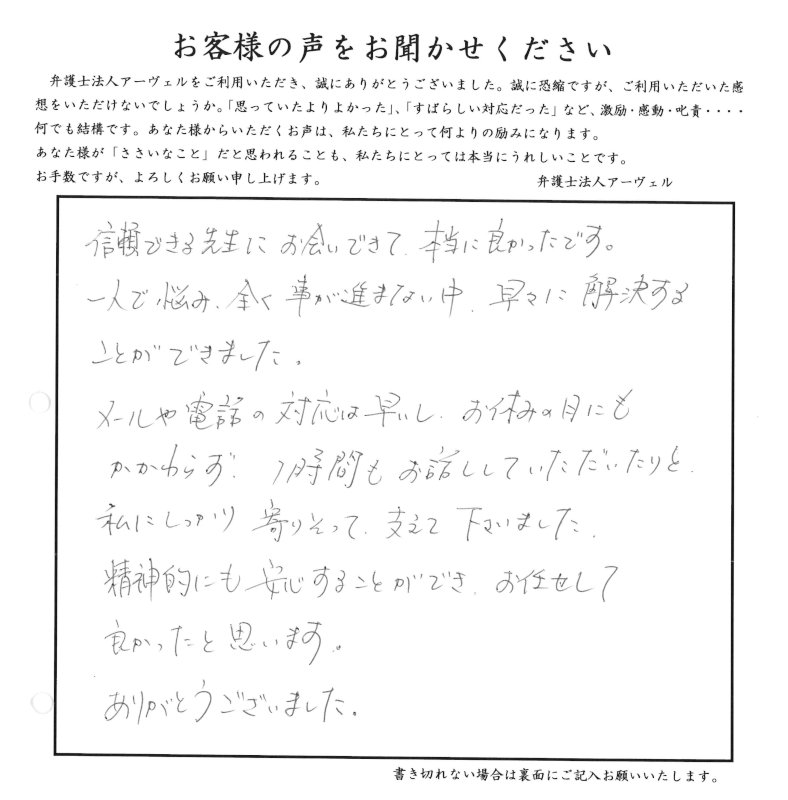 お客様の声をお聞かせください
弁護士法人アーヴェルをご利用いただき、誠にありがとうございました。誠に恐縮ですが、ご利用いただいた感
想をいただけないでしょうか。「思っていたよりよかった」、「すばらしい対応だった」など、激励・感動・叱責・・・・
何でも結構です。あなた様からいただくお声は、私たちにとって何よりの励みになります。
あなた様が「ささいなこと」だと思われることも、私たちにとっては本当にうれしいことです。
お手数ですが、よろしくお願い申し上げます。 弁護士法人アーヴェル
信頼できる先生にお会いできて、本当に良かったです。
一人で悩み、全く事が進まない中、早々に解決する
ことができました。
メールや電話の対応は早いし、お休みの日にも
かかわらず、1時間もお話ししていただいたりと、
私にしっかり寄りそって、支えて下さいました。
精神的にも安心することができ、お任せして
良かったと思います。
ありがとうございました。
書き切れない場合は裏面にご記入お願いいたします。